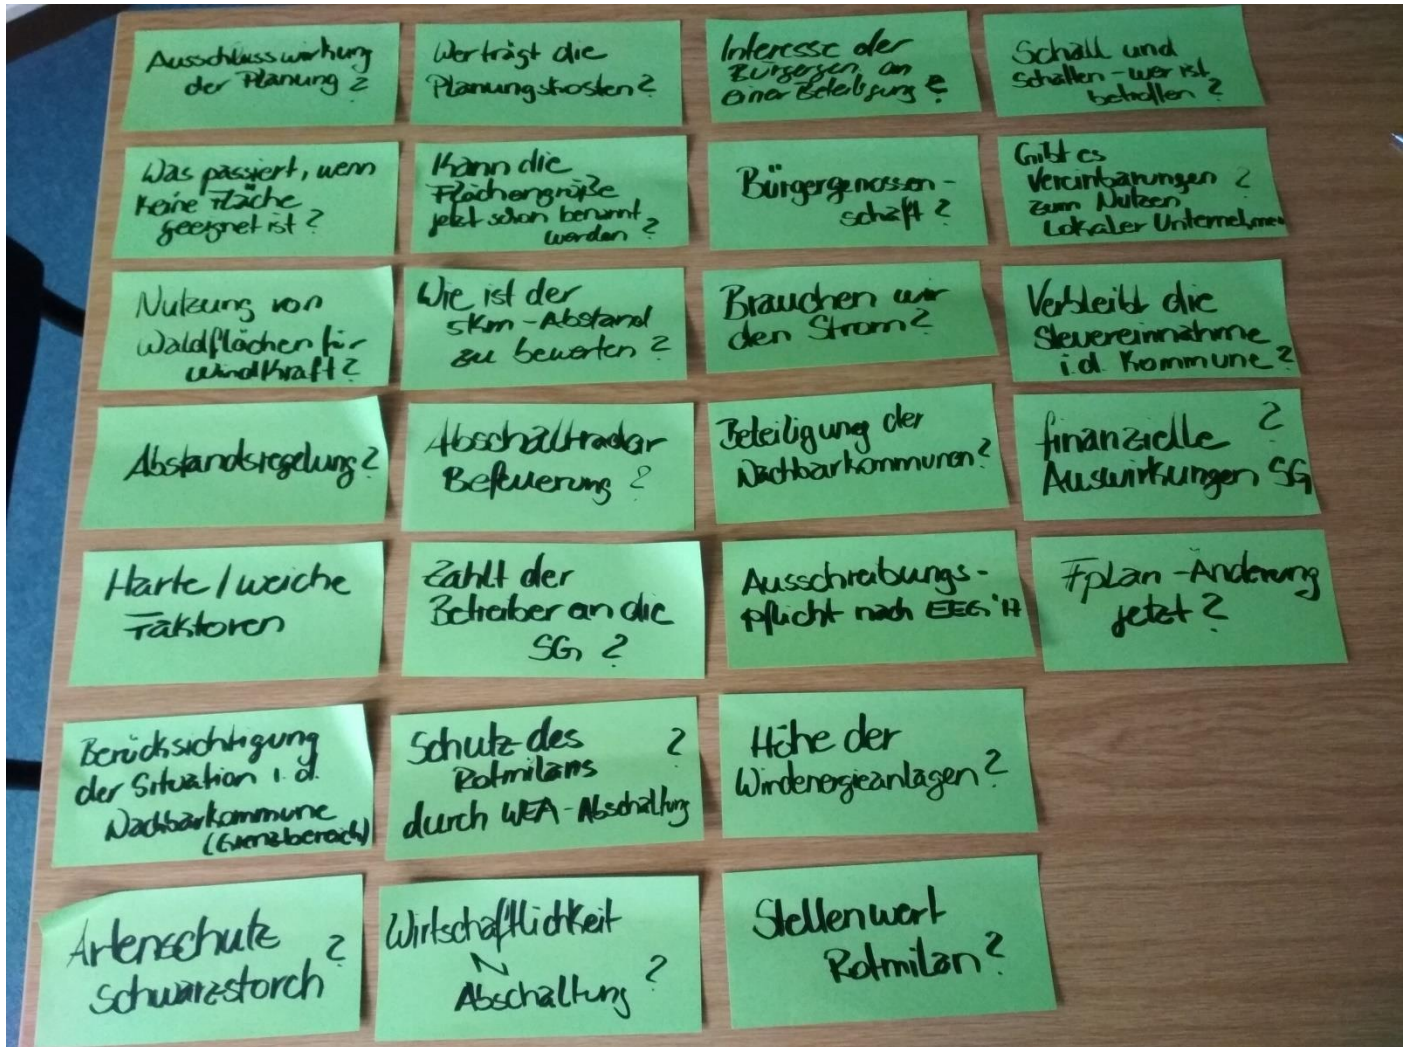 Ausschlusswirkung
der Planung ?
Wer trägt die
Planungskosten ?
Interesse der
Bürger an
einer Beteiligung ?
Schall und
Schatten – wer ist
betroffen ?
Was passiert, wenn
keine Fläche
geeignet ist ?
Kann die
Flächengröße
jetzt schon benannt
werden ?
Bürgergenossen-
schaft ?
Gibt es
Vereinbarungen ?
zum Nutzen
Lokaler Unternehmen
Nutzung von
Waldflächen für
Windkraft ?
Wie ist der
5km-Abstand
zu bewerten ?
Brauchen wir
den Strom ?
Verbleibt die
Steuereinnahme
i.d. Kommune ?
Abstandsregelung ?
Abschaltradar
Befeuerung ?
Beteiligung der
Nachbarkommunen ?
finanzielle ?
Auswirkungen SG
Harte / weiche
Faktoren
Zahlt der
Betreiber an die
SG ?
Ausschreibungs-
pflicht nach EEG '17
Fplan-Änderung
jetzt ?
Berücksichtigung
der Situation i.d.
Nachbarkommune
(Grenzbereich)
Schutz des ?
Rotmilans
durch WEA-Abschaltung
Höhe der
Windenergieanlagen ?
Artenschutz ?
Schwarzstorch
Wirtschaftlichkeit
Abschaltung ?
Stellenwert
Rotmilan ?